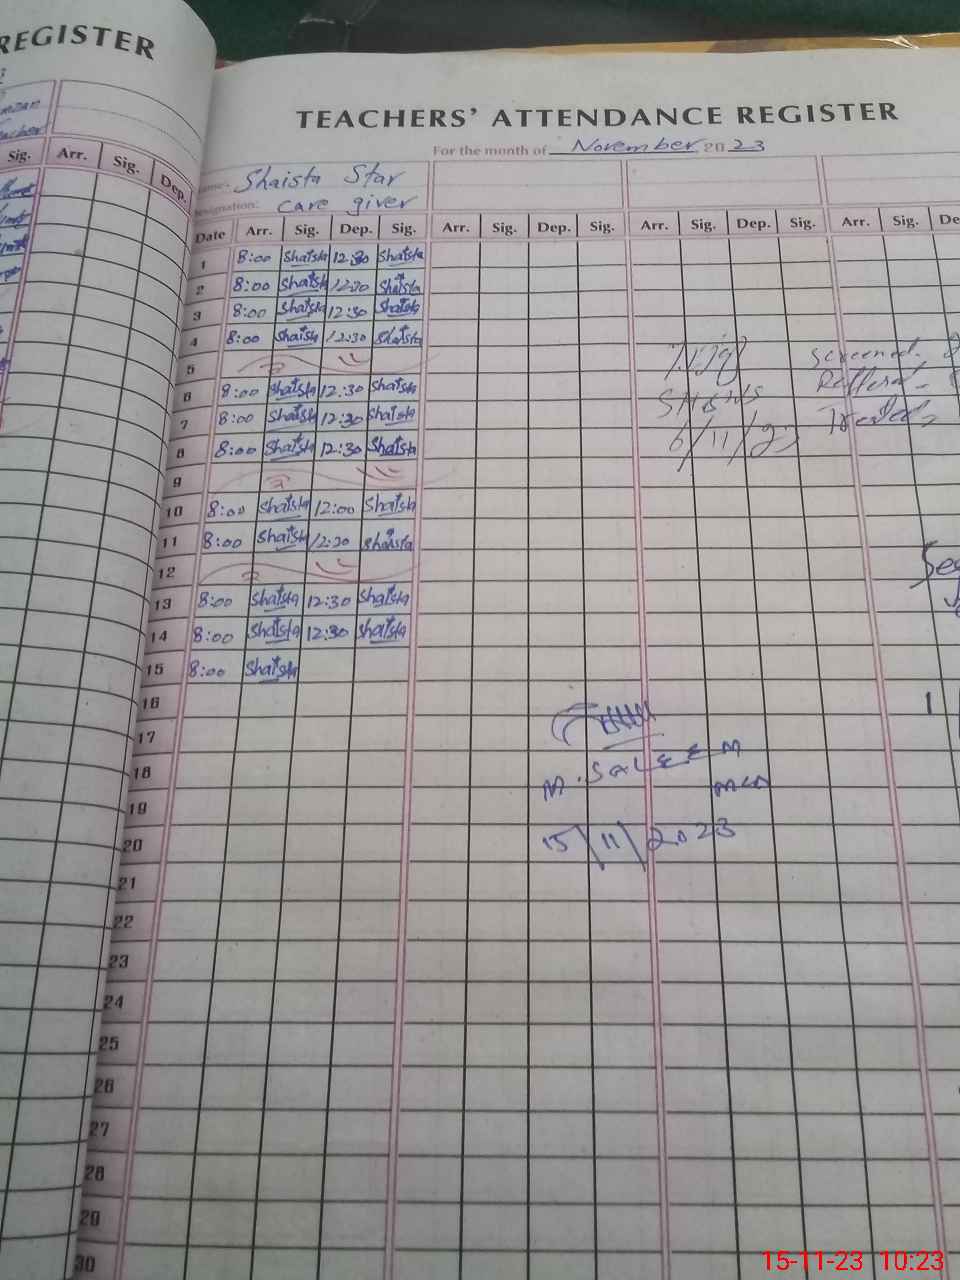 REGISTER
Sig. Arr. Sig. Dep.
TEACHERS' ATTENDANCE REGISTER
For the month of November 2023
Shaista Star
Designation: care giver
Date Arr. Sig. Dep. Sig. Arr. Sig. Dep. Sig. Arr. Sig. Dep. Sig. Arr. Sig.
1 8:00 Shaista 12:30 Shaista
2 8:00 Shaista Shaista
3 8:00 Shaista 12:30 Shaista
4 8:00 Shaista 12:30 Shaista
5
6 8:00 Shaista 12:30 Shaista
7 8:00 Shaista 12:30 Shaista
8 8:00 Shaista 12:30 Shaista
9
10 8:00 Shaista 12:00 Shaista
11 8:00 Shaista Shaista
12
13 8:00 Shaista 12:30 Shaista
14 8:00 Shaista 12:30 Shaista
15 8:00 Shaista
16
17
18
19
20
21
22
23
24
25
26
27
28
29
30
SH&NS
6/11/23
Screened
M. SALEEM
15/11/2023
15-11-23 10:23